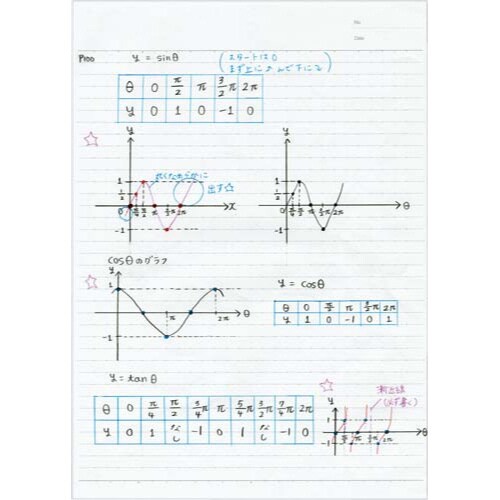 No.
Date
P100 y = sinθ
スタートは0
θ 0 π/2 π 3/2π 2π
y 0 1 0 -1 0
☆ y
1
1/2
0 π/2 π 3/2π 2π x
-1
出す☆
y
1
1/2
π/2 π 3/2π 2π θ
-1
cosθのグラフ
☆ y
1
π 2π θ
-1
y = cosθ
θ 0 π/2 π 3/2π 2π
y 1 0 -1 0 1
y = tanθ
θ 0 π/4 π/2 3/4π π 5/4π 3/2π 7/4π 2π
y 0 1 なし -1 0 1 なし -1 0
☆ 漸近線
(必ず書く)
y
1
π/2 π 3/2π 2π θ
-1